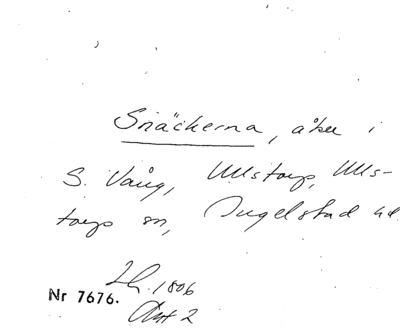 Snäckerna, åker i
S. Vång, Ullstorp, Ulls-
torps sn, Ingelstad hd.
Lh. 1806
Akt 2
Nr 7676.